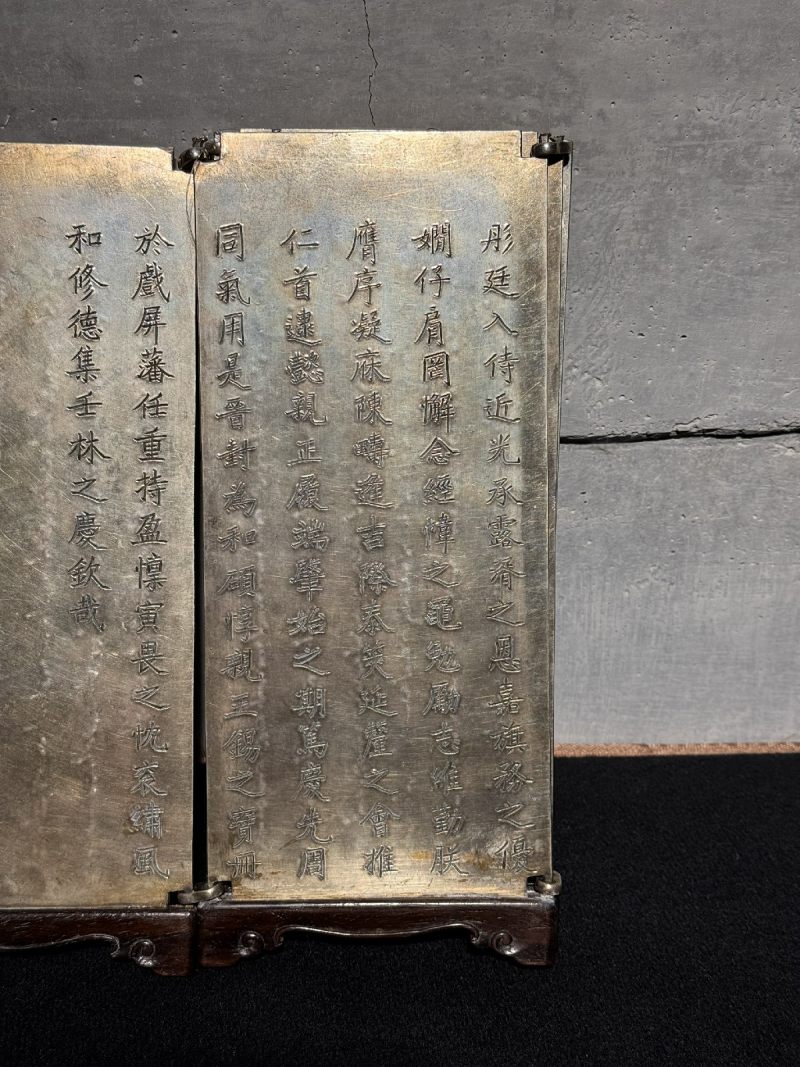 彤廷入侍近光承露湑之恩嘉旗務之優
嫺仔肩罔懈念經幃之黽勉勵志惟勤朕
膺序凝庥陳疇進吉際泰筴延釐之會推
仁首逮懿親正履端肇始之期篤慶先周
同氣用是晉封為和碩惇親王錫之寶冊
於戲屏藩任重持盈懍寅畏之忱袞繡風
和修德集壬林之慶欽哉